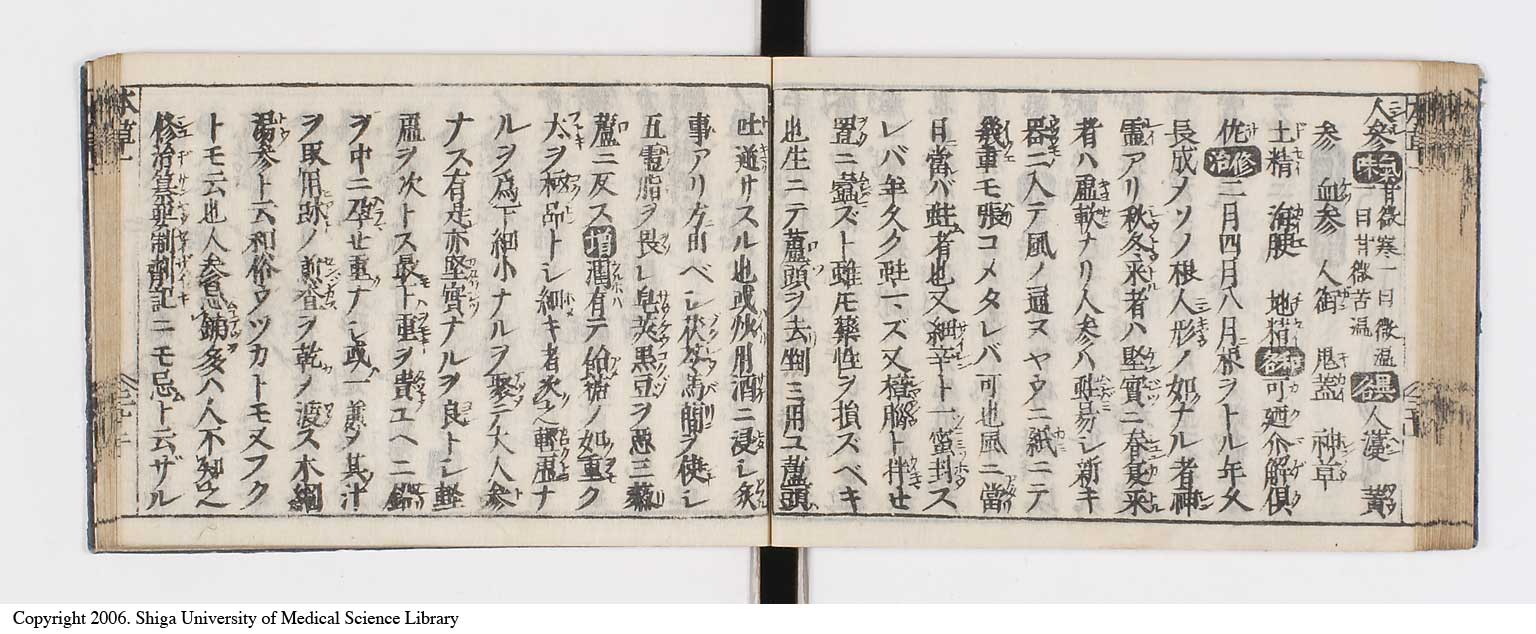 人参 気味 甘微寒一曰微温 異名 人薓 黄
一曰甘微苦温
参 血参 人銜 鬼蓋 神草
土精 海腴 地精 称名 可迴介解倶
佐 修治 二月四月八月根ヲトル年久
長成ノソノ根人形ノ如ナル者神
霊アリ秋冬采者ハ堅実ニ春夏采
者ハ虚軟ナリ人参ハ蛀易シ新キ
器ニ入テ風ノ通ヌヤウニ紙ニテ
幾重モ張コメタレバ可也風ニ當
日當バ蛀者也又細辛ト一蜜封ス
レバ年久ク蛀ーズ又樟脳ト拌セ
置ニ蠧ズト雖モ薬性ヲ損ズベキ
也生ニテ蘆頭ヲ去剉ミ用ユ蘆頭
吐逆サスル也或炒用酒ニ浸シ炙
事アリ左由ベシ茯苓馬藺ヲ使シ
五霊脂ヲ畏レ皂莢黒豆ヲ悪三藜
蘆ニ反ス 増 潤有テ飴糖ノ如重ク
太ヲ極品トシ細キ者次之軽虚ナ
ルヲ為下細小ナルヲ聚テ大人参
ナス有是亦堅実ナルヲ良トシ軽
虚ヲ次トス最ト重ヲ貴ユヘニ鉛
ヲ中ニ孕セ重ナシ或一煎ヲ其汁
ヲ取用跡ノ煎査ヲ乾ノ渡ス木綱
湯参ト云和俗ウツカトモ又フク
トモ云也人参息鋪多ハ人不知之
修治纂要制剤記ニモ忌ト云ザル
本草一
Copyright 2006. Shiga University of Medical Science Library